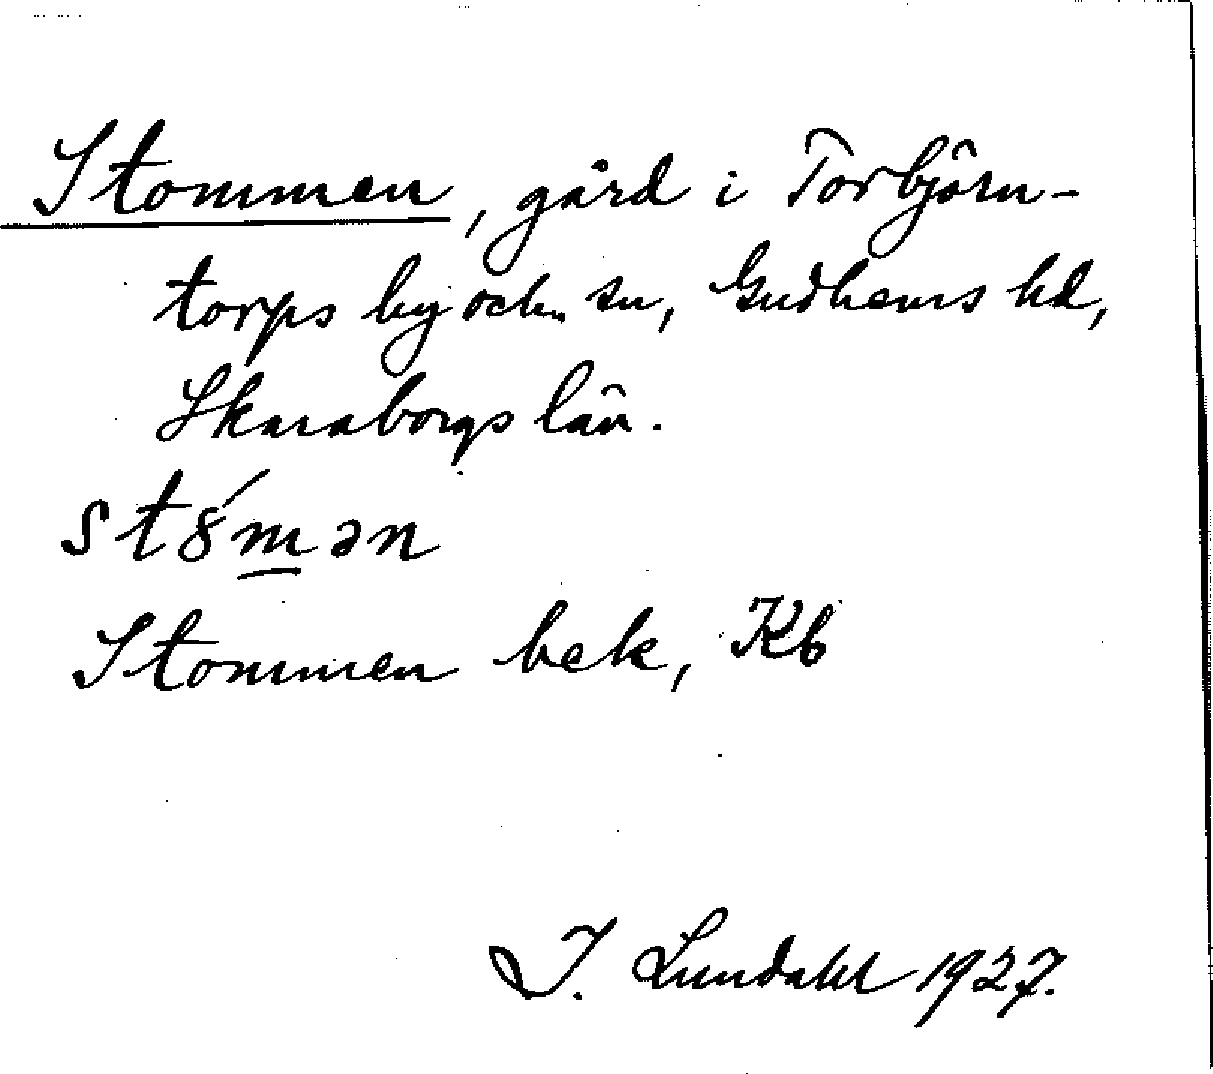 Stommen, gård i Torbjörn-
torps by och sn, Gudhems hd,
Skaraborgs län.
st8́m̲ən
Stommen bek, Kb
I. Lundahl 1927.